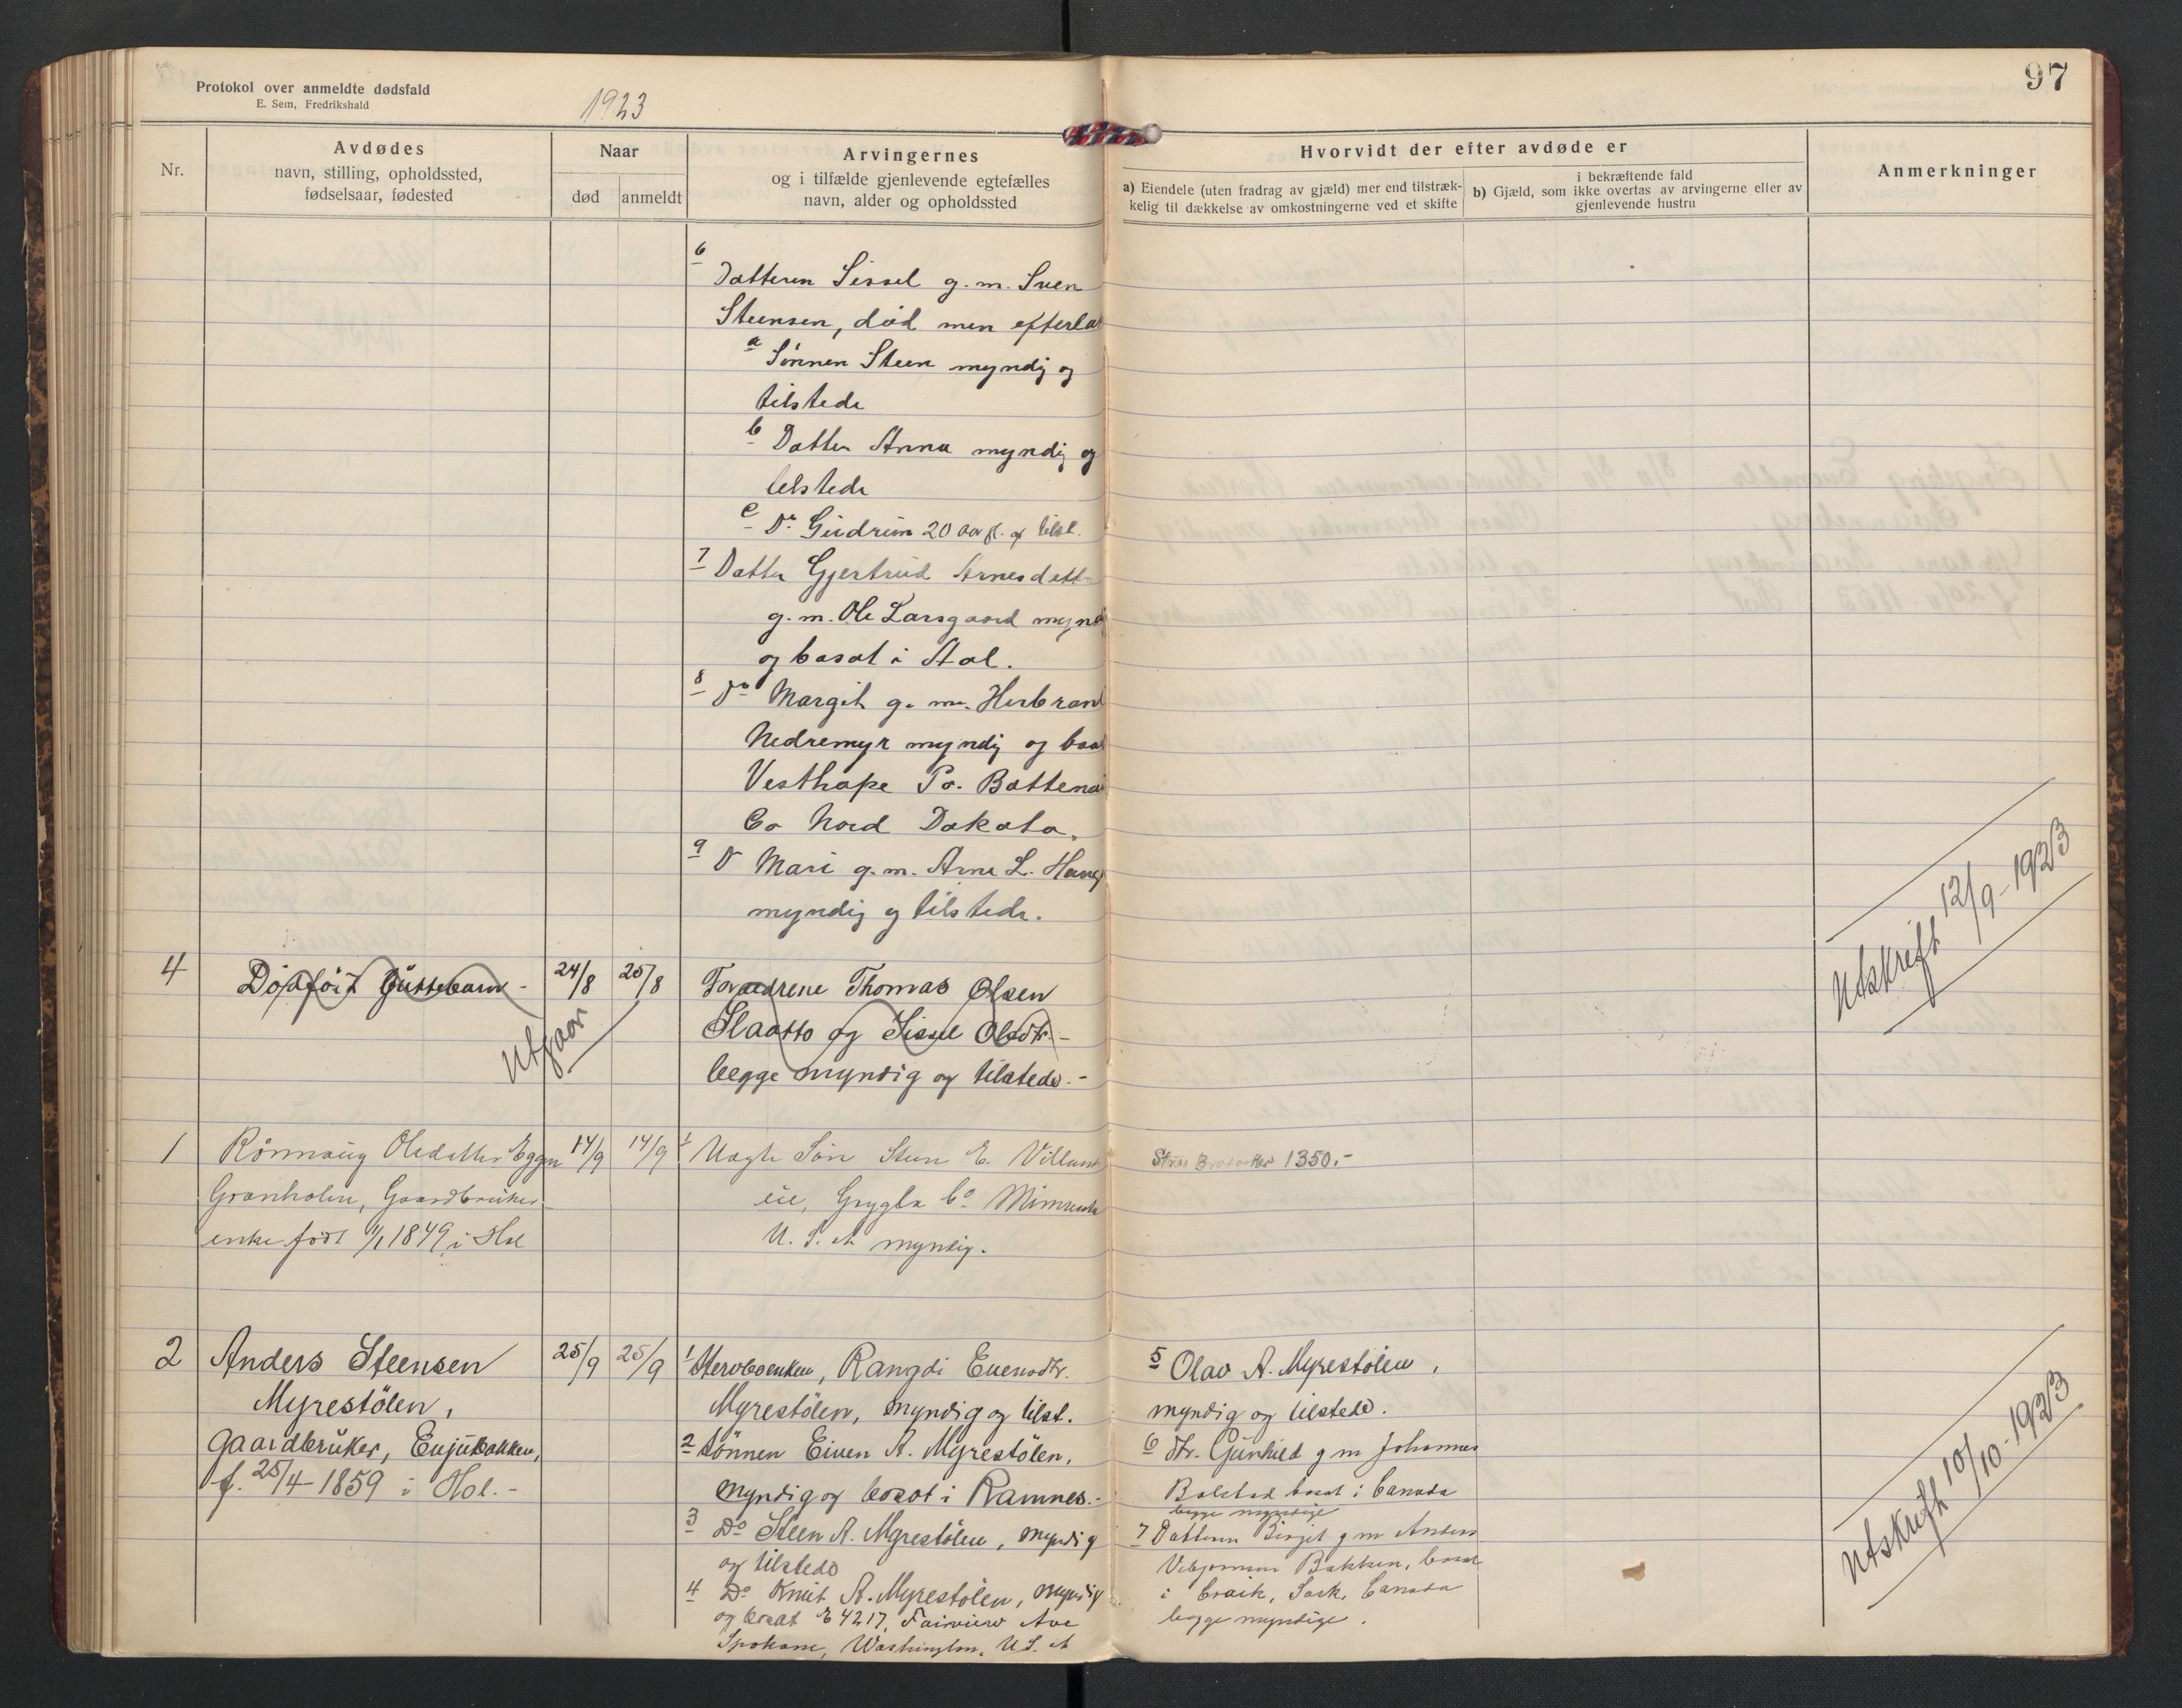 97
Protokol over anmeldte dødsfald
E. Sem, Fredrikshald
1923
Nr.
Avdødes
navn, stilling, opholdssted,
fødselsaar, fødested
Naar
død
anmeldt
Arvingernes
og i tilfælde gjenlevende egtefælles
navn, alder og opholdssted
Hvorvidt der efter avdøde er
a) Eiendele (uten fradrag av gjæld) mer end tilstræk-
kelig til dækkelse av omkostningerne ved et skifte
i bekræftende fald
b) Gjæld, som ikke overtas av arvingerne eller av
gjenlevende hustru
Anmerkninger
6
Datteren Sissel g. m. Sven
Steensen, død men efterlat
a Sønnen Steen myndig og
tilstede
b Datter Anna myndig og
tilstede
c Do Gudrun 20 aar gl. og tilst.
7 Datter Gjertrud Arnesdatt
g. m. Ole Larsgaard mynd
og bosat i Aal.
8 Do Margit g. m. Herbrand
Nedremyr myndig og bosat
Vesthope Po. Bottenau
Co Nord Dakota.
9 D Mari g. m. Arne L. Haug
myndig og tilstede.
Utskrift 12/9-1923
4
Dødfødt Guttebarn -
24/8
25/8
Utgaar
Forældrene Thomas Olsen
Slaatto og Sissel Olsdtr. -
begge myndig og tilstede. -
1
Rønnaug Olsdatter Eggen
Granholm, Gaardbruker-
enke født 1/1 1849 i Hol
14/9
14/9
1 Uægte Søn Steen E. Villand
Grygla Co Minnesota
U. S. A myndig.
1350.-
2
Anders Steensen
Myrestölen,
gaardbruker,
f. 25/4-1859 i Hol. -
25/9
25/9
1 Stervboenken, Rangdi Evensdtr.
Myrestölen, myndig og tilst.
2 Sönnen Eiven A. Myrestölen,
myndig og bosat i Ramnes. -
3 Do Steen A. Myrestölen, myndig
og tilstede
4 Do Knut A. Myrestölen, myndig
og bosat E 4217, Fairview Ave
Spokane, Washington, U.S. A
5 Olav A. Myrestölen,
myndig og tilstede.
6 dtr. Gunhild g m Johannes
Bolstad bosat i Canada
begge myndige
7 Datteren Birgit g m Anders
Bakken, bosat
i Craik, Sask, Canada
begge myndige.
Utskrift 10/10-1923